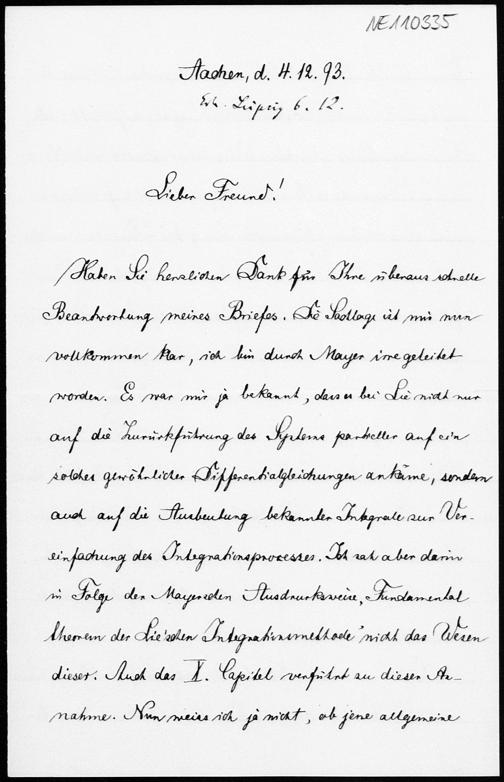 NE110335
Aachen, d. 4.12.93.
Erh. Leipzig 6. 12.
Lieber Freund!
Haben Sie herzlichen Dank für Ihre überaus schnelle
Beantwortung meines Briefes. Die Sachlage ist mir nun
vollkommen klar, ich bin durch Mayer irre geleitet
worden. Es war mir ja bekannt, dass es bei Lie nicht nur
auf die Zurückführung des Systems partieller auf ein
solches gewöhnlicher Differentialgleichungen ankäme, sondern
auch auf die Ausbeutung bekannter Integrale zur Ver-
einfachung des Integrationsprocesses. Ich sah aber darin
in Folge der Mayerschen Ausdrucksweise, „Fundamental
theorem der Lie'schen Integrationsmethode" nicht das Wesen
dieser. Auch das X. Capitel verführt zu dieser An-
nahme. Nun weiss ich ja nicht, ob jene allgemeine